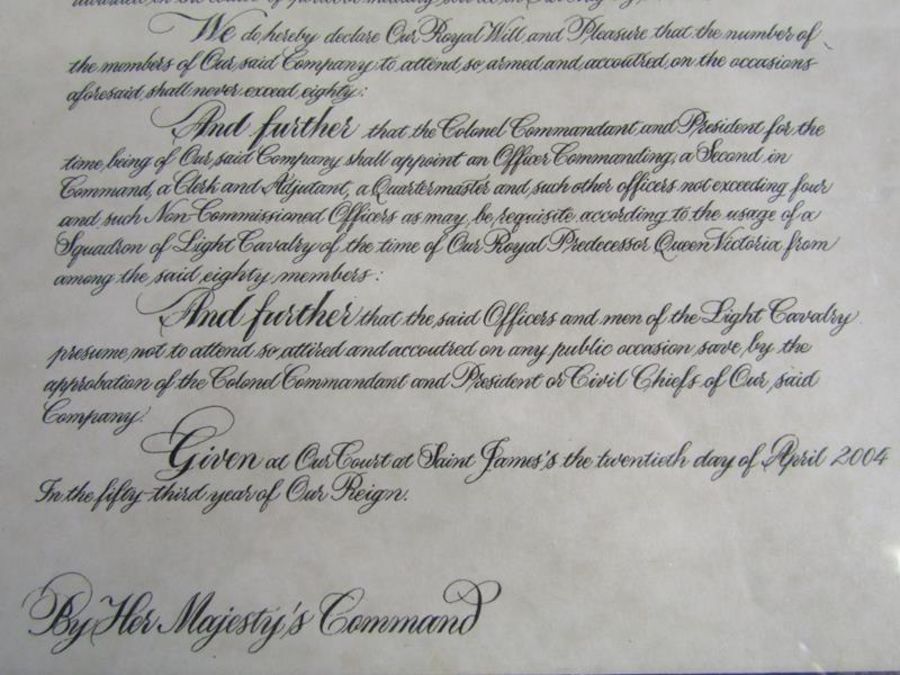 We do hereby declare Our Royal Will and Pleasure that the number of
the members of Our said Company to attend, so, armed and accoutred, on the occasions
aforesaid, shall never exceed eighty:
And further that the Colonel Commandant and President for the
time, being of Our said Company shall appoint an Officer Commanding, a Second in
Command, a Clerk and Adjutant, a Quartermaster and such other officers not exceeding four
and such Non-Commissioned Officers as may be requisite according to the usage of a
Squadron of Light Cavalry of the time of Our Royal Predecessor Queen Victoria from
among the said eighty members:
And further that the said Officers and men of the Light Cavalry
presume not to attend so attired and accoutred on any public occasion save by the
approbation of the Colonel Commandant and President or Civil Chiefs of Our said
Company.
Given at Our Court at Saint James's the twentieth day of April 2004
In the fifty-third year of Our Reign.
By Her Majesty's Command